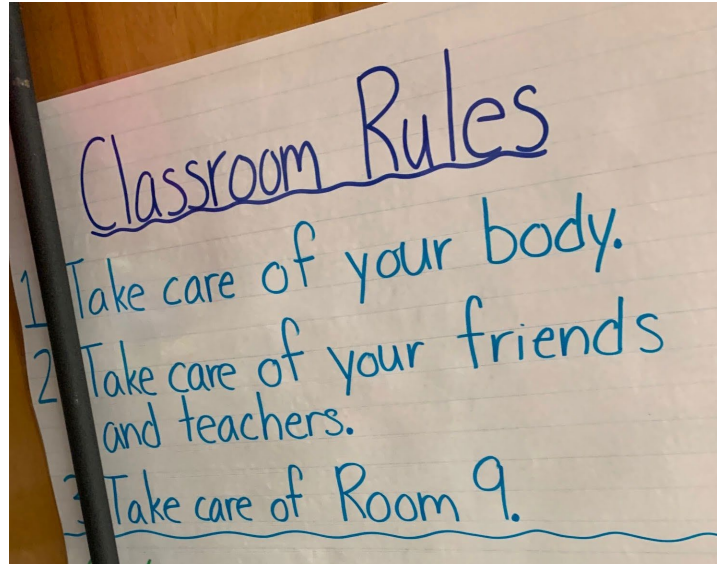 Classroom Rules
1 Take care of your body.
2 Take care of your friends
and teachers.
3 Take care of Room 9.